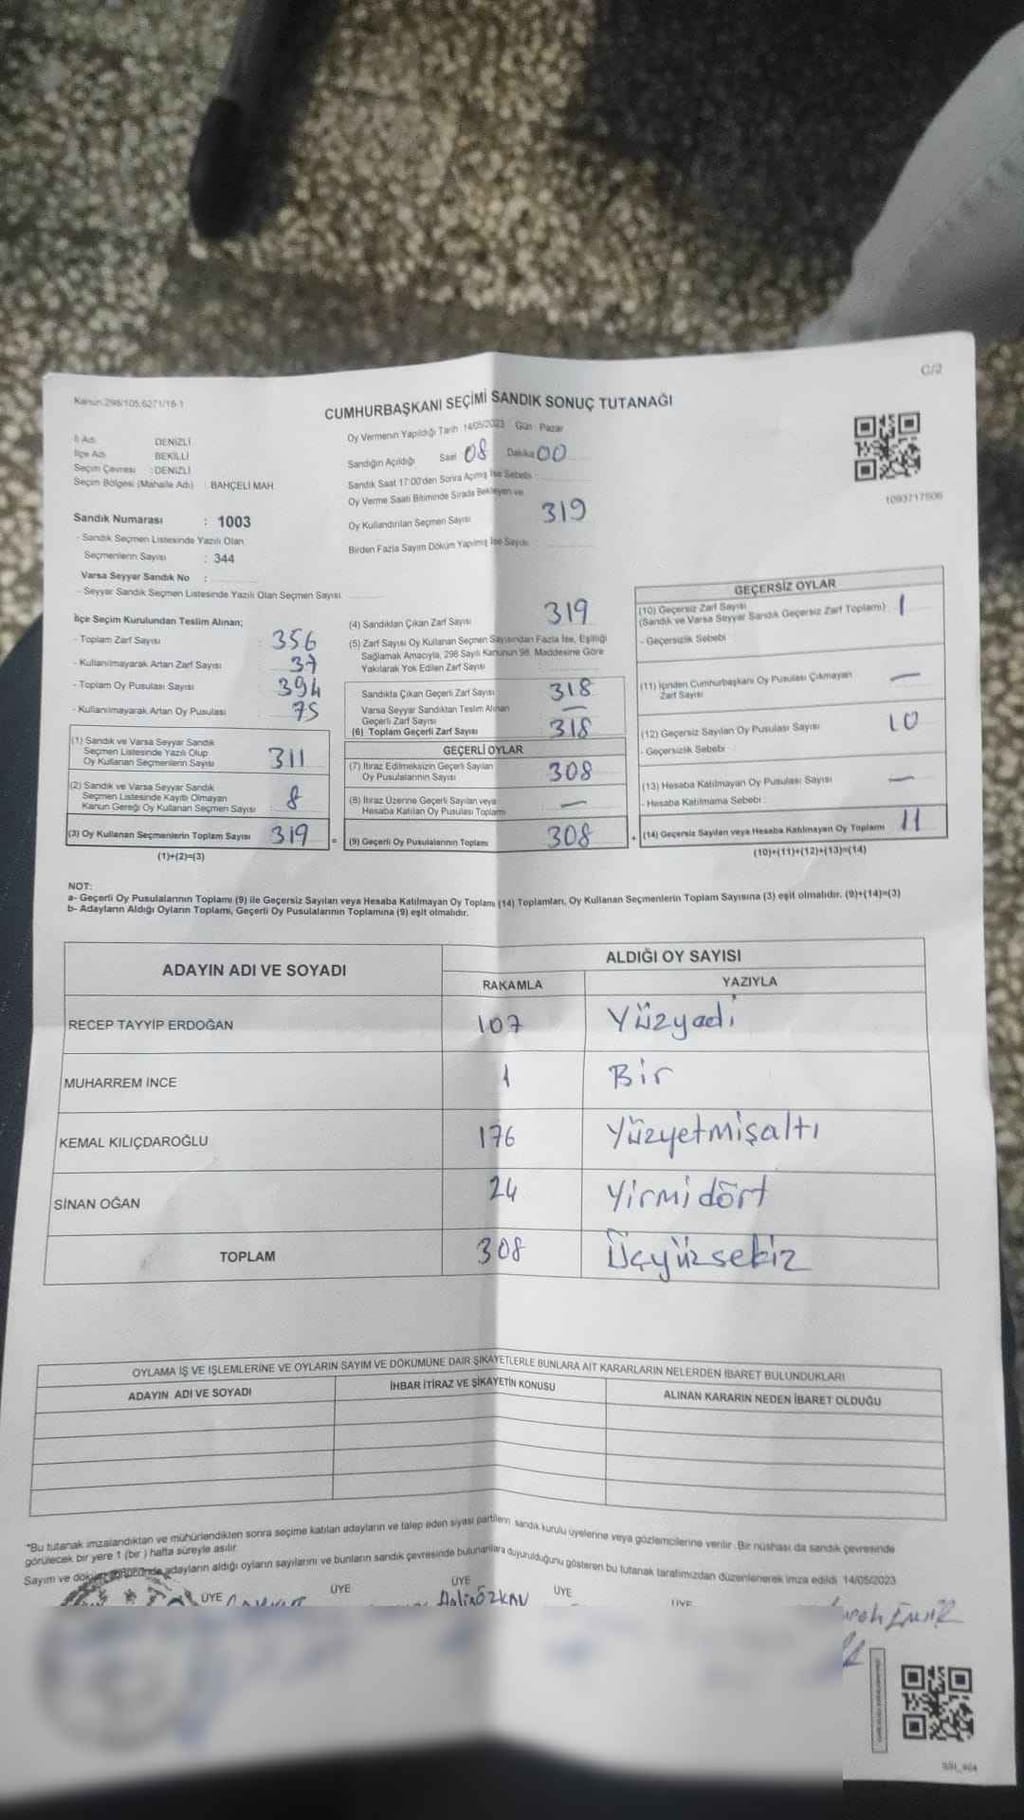 Kanun:298/105,6271/16-1
C/2
CUMHURBAŞKANI SEÇİMİ SANDIK SONUÇ TUTANAĞI
İl Adı DENİZLİ
İlçe Adı BEKİLLİ
Seçim Çevresi : DENİZLİ
Seçim Bölgesi (Mahalle Adı) : BAHÇELİ MAH.
Sandık Numarası : 1003
- Sandık Seçmen Listesinde Yazılı Olan
Seçmenlerin Sayısı : 344
Varsa Seyyar Sandık No :
- Seyyar Sandık Seçmen Listesinde Yazılı Olan Seçmen Sayısı
Oy Vermenin Yapıldığı Tarih : 14/05/2023 Gün : Pazar
Sandığın Açıldığı Saat 08 Dakika 00
Sandık Saat 17:00'den Sonra Açılmış İse Sebebi :
Oy Verme Saati Bitiminde Sırada Bekleyen ve
Oy Kullandırılan Seçmen Sayısı 319
Birden Fazla Sayım Döküm Yapılmış İse Sayısı
1093717506
İlçe Seçim Kurulundan Teslim Alınan;
- Toplam Zarf Sayısı : 356
- Kullanılmayarak Artan Zarf Sayısı : 37
- Toplam Oy Pusulası Sayısı : 394
- Kullanılmayarak Artan Oy Pusulası : 75
(1) Sandık ve Varsa Seyyar Sandık
Seçmen Listesinde Yazılı Olup
Oy Kullanan Seçmenlerin Sayısı 311
(2) Sandık ve Varsa Seyyar Sandık
Seçmen Listesinde Kayıtlı Olmayan
Kanun Gereği Oy Kullanan Seçmen Sayısı 8
(3) Oy Kullanan Seçmenlerin Toplam Sayısı 319
(1)+(2)=(3)
(4) Sandıktan Çıkan Zarf Sayısı 319
(5) Zarf Sayısı Oy Kullanan Seçmen Sayısından Fazla İse, Eşitliği
Sağlamak Amacıyla, 298 Sayılı Kanunun 98. Maddesine Göre
Yakılarak Yok Edilen Zarf Sayısı
Sandıkta Çıkan Geçerli Zarf Sayısı 318
Varsa Seyyar Sandıktan Teslim Alınan
Geçerli Zarf Sayısı —
(6) Toplam Geçerli Zarf Sayısı 318
GEÇERLİ OYLAR
(7) İtiraz Edilmeksizin Geçerli Sayılan
Oy Pusulalarının Sayısı 308
(8) İtiraz Üzerine Geçerli Sayılan veya
Hesaba Katılan Oy Pusulası Toplamı —
= (9) Geçerli Oy Pusulalarının Toplamı 308
GEÇERSİZ OYLAR
(10) Geçersiz Zarf Sayısı
(Sandık ve Varsa Seyyar Sandık Geçersiz Zarf Toplamı) 1
- Geçersizlik Sebebi
(11) İçinden Cumhurbaşkanı Oy Pusulası Çıkmayan
Zarf Sayısı —
(12) Geçersiz Sayılan Oy Pusulası Sayısı 10
- Geçersizlik Sebebi
(13) Hesaba Katılmayan Oy Pusulası Sayısı —
- Hesaba Katılmama Sebebi :
+ (14) Geçersiz Sayılan veya Hesaba Katılmayan Oy Toplamı 11
(10)+(11)+(12)+(13)=(14)
NOT:
a- Geçerli Oy Pusulalarının Toplamı (9) ile Geçersiz Sayılan veya Hesaba Katılmayan Oy Toplamı (14) Toplamları, Oy Kullanan Seçmenlerin Toplam Sayısına (3) eşit olmalıdır. (9)+(14)=(3)
b- Adayların Aldığı Oyların Toplamı, Geçerli Oy Pusulalarının Toplamına (9) eşit olmalıdır.
ADAYIN ADI VE SOYADI ALDIĞI OY SAYISI
RAKAMLA YAZIYLA
RECEP TAYYİP ERDOĞAN 107 Yüzyedi
MUHARREM İNCE 1 Bir
KEMAL KILIÇDAROĞLU 176 Yüzyetmişaltı
SİNAN OĞAN 24 Yirmidört
TOPLAM 308 Üçyüzsekiz
OYLAMA İŞ VE İŞLEMLERİNE VE OYLARIN SAYIM VE DÖKÜMÜNE DAİR ŞİKAYETLERLE BUNLARA AİT KARARLARIN NELERDEN İBARET BULUNDUKLARI
ADAYIN ADI VE SOYADI İHBAR İTİRAZ VE ŞİKAYETİN KONUSU ALINAN KARARIN NEDEN İBARET OLDUĞU
*Bu tutanak imzalandıktan ve mühürlendikten sonra seçime katılan adayların ve talep eden siyasi partilerin sandık kurulu üyelerine veya gözlemcilerine verilir. Bir nüshası da sandık çevresinde
görülecek bir yere 1 (bir) hafta süreyle asılır.
Sayım ve döküm sonucunda adayların aldığı oyların sayılarını ve bunların sandık çevresinde bulunanlara duyurulduğunu gösteren bu tutanak tarafımızdan düzenlenerek imza edildi. 14/05/2023
ÜYE ÜYE ÜYE ÜYE ÜYE